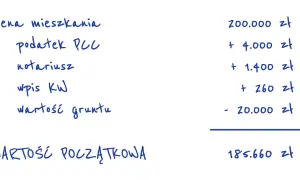 ena mieszkania 200.000 zł
podatek PCC + 4.000 zł
notariusz + 1.400 zł
wpis KW + 260 zł
wartość gruntu - 20.000 zł
ARTOŚĆ POCZĄTKOWA 185.660 zł